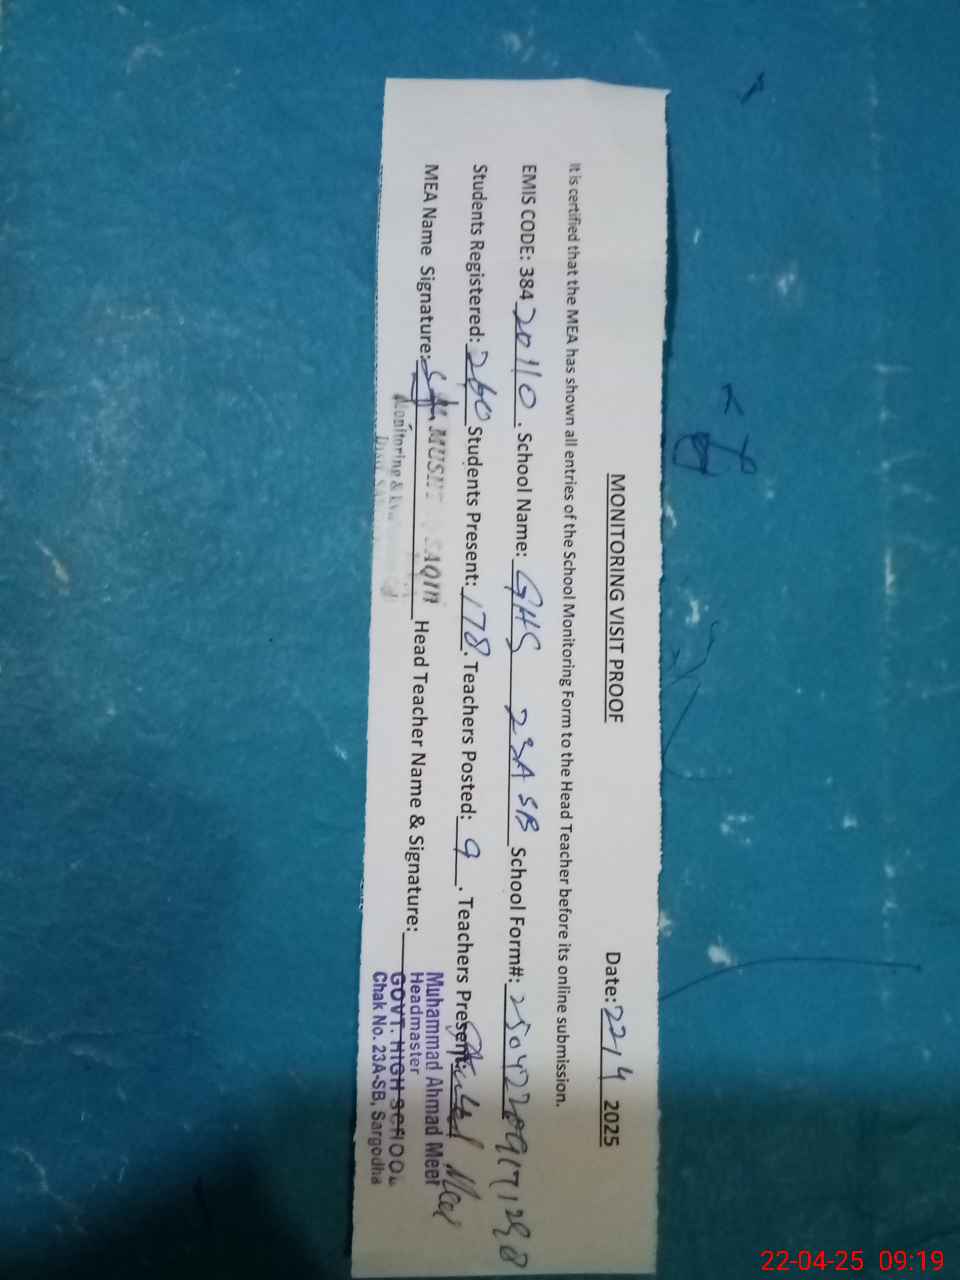 MONITORING VISIT PROOF
Date: 22/4 2025
It is certified that the MEA has shown all entries of the School Monitoring Form to the Head Teacher before its online submission.
EMIS CODE: 38420110. School Name: GHS 23A SB School Form#:
Students Registered: 260 Students Present: 178. Teachers Posted: 9. Teachers Present:
MEA Name Signature: Head Teacher Name & Signature:
SAQIB
Monitoring &
Muhammad Ahmad Meer
Headmaster
GOVT. HIGH SCHOOL
Chak No. 23A-SB, Sargodha
22-04-25 09:19